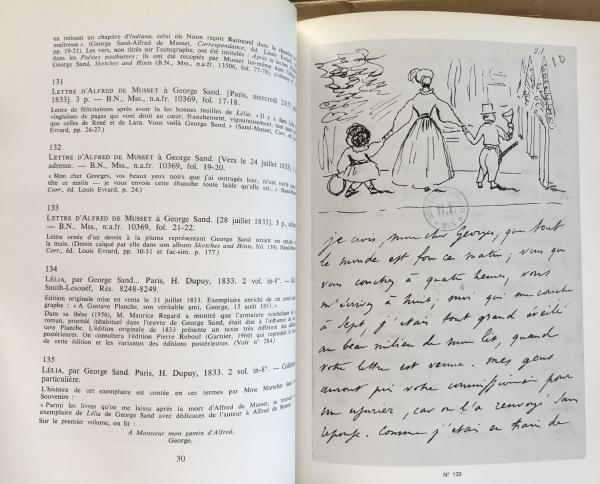 en relisant un chapitre d'Indiana, celui où Noun reçoit Raimond dans la chambre de
maîtresse » (George Sand-Alfred de Musset, Correspondance, éd. Louis Evrard,
pp. 19-21). Les vers, non titrés sur l'autographe, ont été intitulés : Après la lecture d'Indiana
dans les Poésies posthumes; ils ont été recopiés par Musset lui-même dans l'album
George Sand, Sketches and Hints (B.N., Mss., n.a.fr. 13506, fol. 77-78),
131
LETTRE D'ALFRED DE MUSSET à George Sand. [Paris, mercredi
1833]. 3 p. — B.N., Mss., n.a.fr. 10369, fol. 17-18.
Lettre de félicitations après avoir lu les bonnes feuilles de Lélia, « Il y a dans Lélia
vingtaines de pages qui vont droit au cœur, franchement, vigoureusement, tout aussi
que celles de René et de Lara. Vous voilà George Sand. » (Sand-Musset, Corr., éd. Louis
Evrard, pp. 26-27.)
132
LETTRE D'ALFRED DE MUSSET à George Sand. [Vers le 24 juillet 1833].
adresse. — B.N., Mss., n.a.fr. 10369, fol. 19-20.
« Mon cher Georges, vos beaux yeux noirs que j'ai outragés hier, m'ont trotté
tête ce matin — je vous envoie cette ébauche toute laide qu'elle est... » (Sand-Musset,
Corr., éd. Louis Evrard, p. 24.)
133
LETTRE D'ALFRED DE MUSSET à George Sand. [28 juillet 1833]. 3 p.,
— B.N., Mss., n.a.fr. 10369, fol. 21-22.
Lettre ornée d'un dessin à la plume représentant George Sand tenant ses enfants
la main. (Dessin calqué par elle dans son album Sketches and Hints, fol. 150). (Sand-Musset,
Corr., éd. Louis Evrard, pp. 30-31 et fac-sim. p. 177.)
134
LÉLIA, par George Sand... Paris, H. Dupuy, 1833. 2 vol. in-8°. — B.N.,
Smith-Lesouëf, Rés. 8248-8249.
Edition originale mise en vente le 31 juillet 1833. Exemplaire enrichi de cet envoi
graphe : « A Gustave Planche, son véritable ami, George, 15 août 1833. »
Dans sa thèse (1956), M. Maurice Regard a montré que l'armature symbolique
roman, procédé inhabituel dans l'œuvre de George Sand, était due à l'influence de
tave Planche. L'édition originale de 1833 présente un texte très différent des
postérieures. On consultera l'édition Pierre Reboul (Garnier, 1960) qui reproduit le texte
de cette édition et les variantes des éditions postérieures. (Voir n° 284.)
135
LÉLIA, par George Sand. Paris, H. Dupuy, 1833. 2 vol. in-8°. — Collection
particulière.
L'histoire de cet exemplaire est contée en ces termes par Mme Martellet dans
Souvenirs :
« Parmi les livres qu'on me laissa après la mort d'Alfred de Musset, se trouvait
exemplaire de Lélia de George Sand avec dédicaces de l'auteur à Alfred de Musset
Sur le premier volume, on lit :
A Monsieur mon gamin d'Alfred.
George.
30
21
10
je crois, mon cher Georges, que tout
le monde est fou ce matin; vous qui
vous couchez à quatre heures, vous
m'écrivez à huit; moi qui me couche
à sept, j'étais tout grand éveillé
au beau milieu de mon lit, quand
votre lettre est venue. Mes gens
auront pris votre commissionnaire pour
un usurier, car on l'a renvoyé sans
réponse. Comme j'étais en train de
N° 133